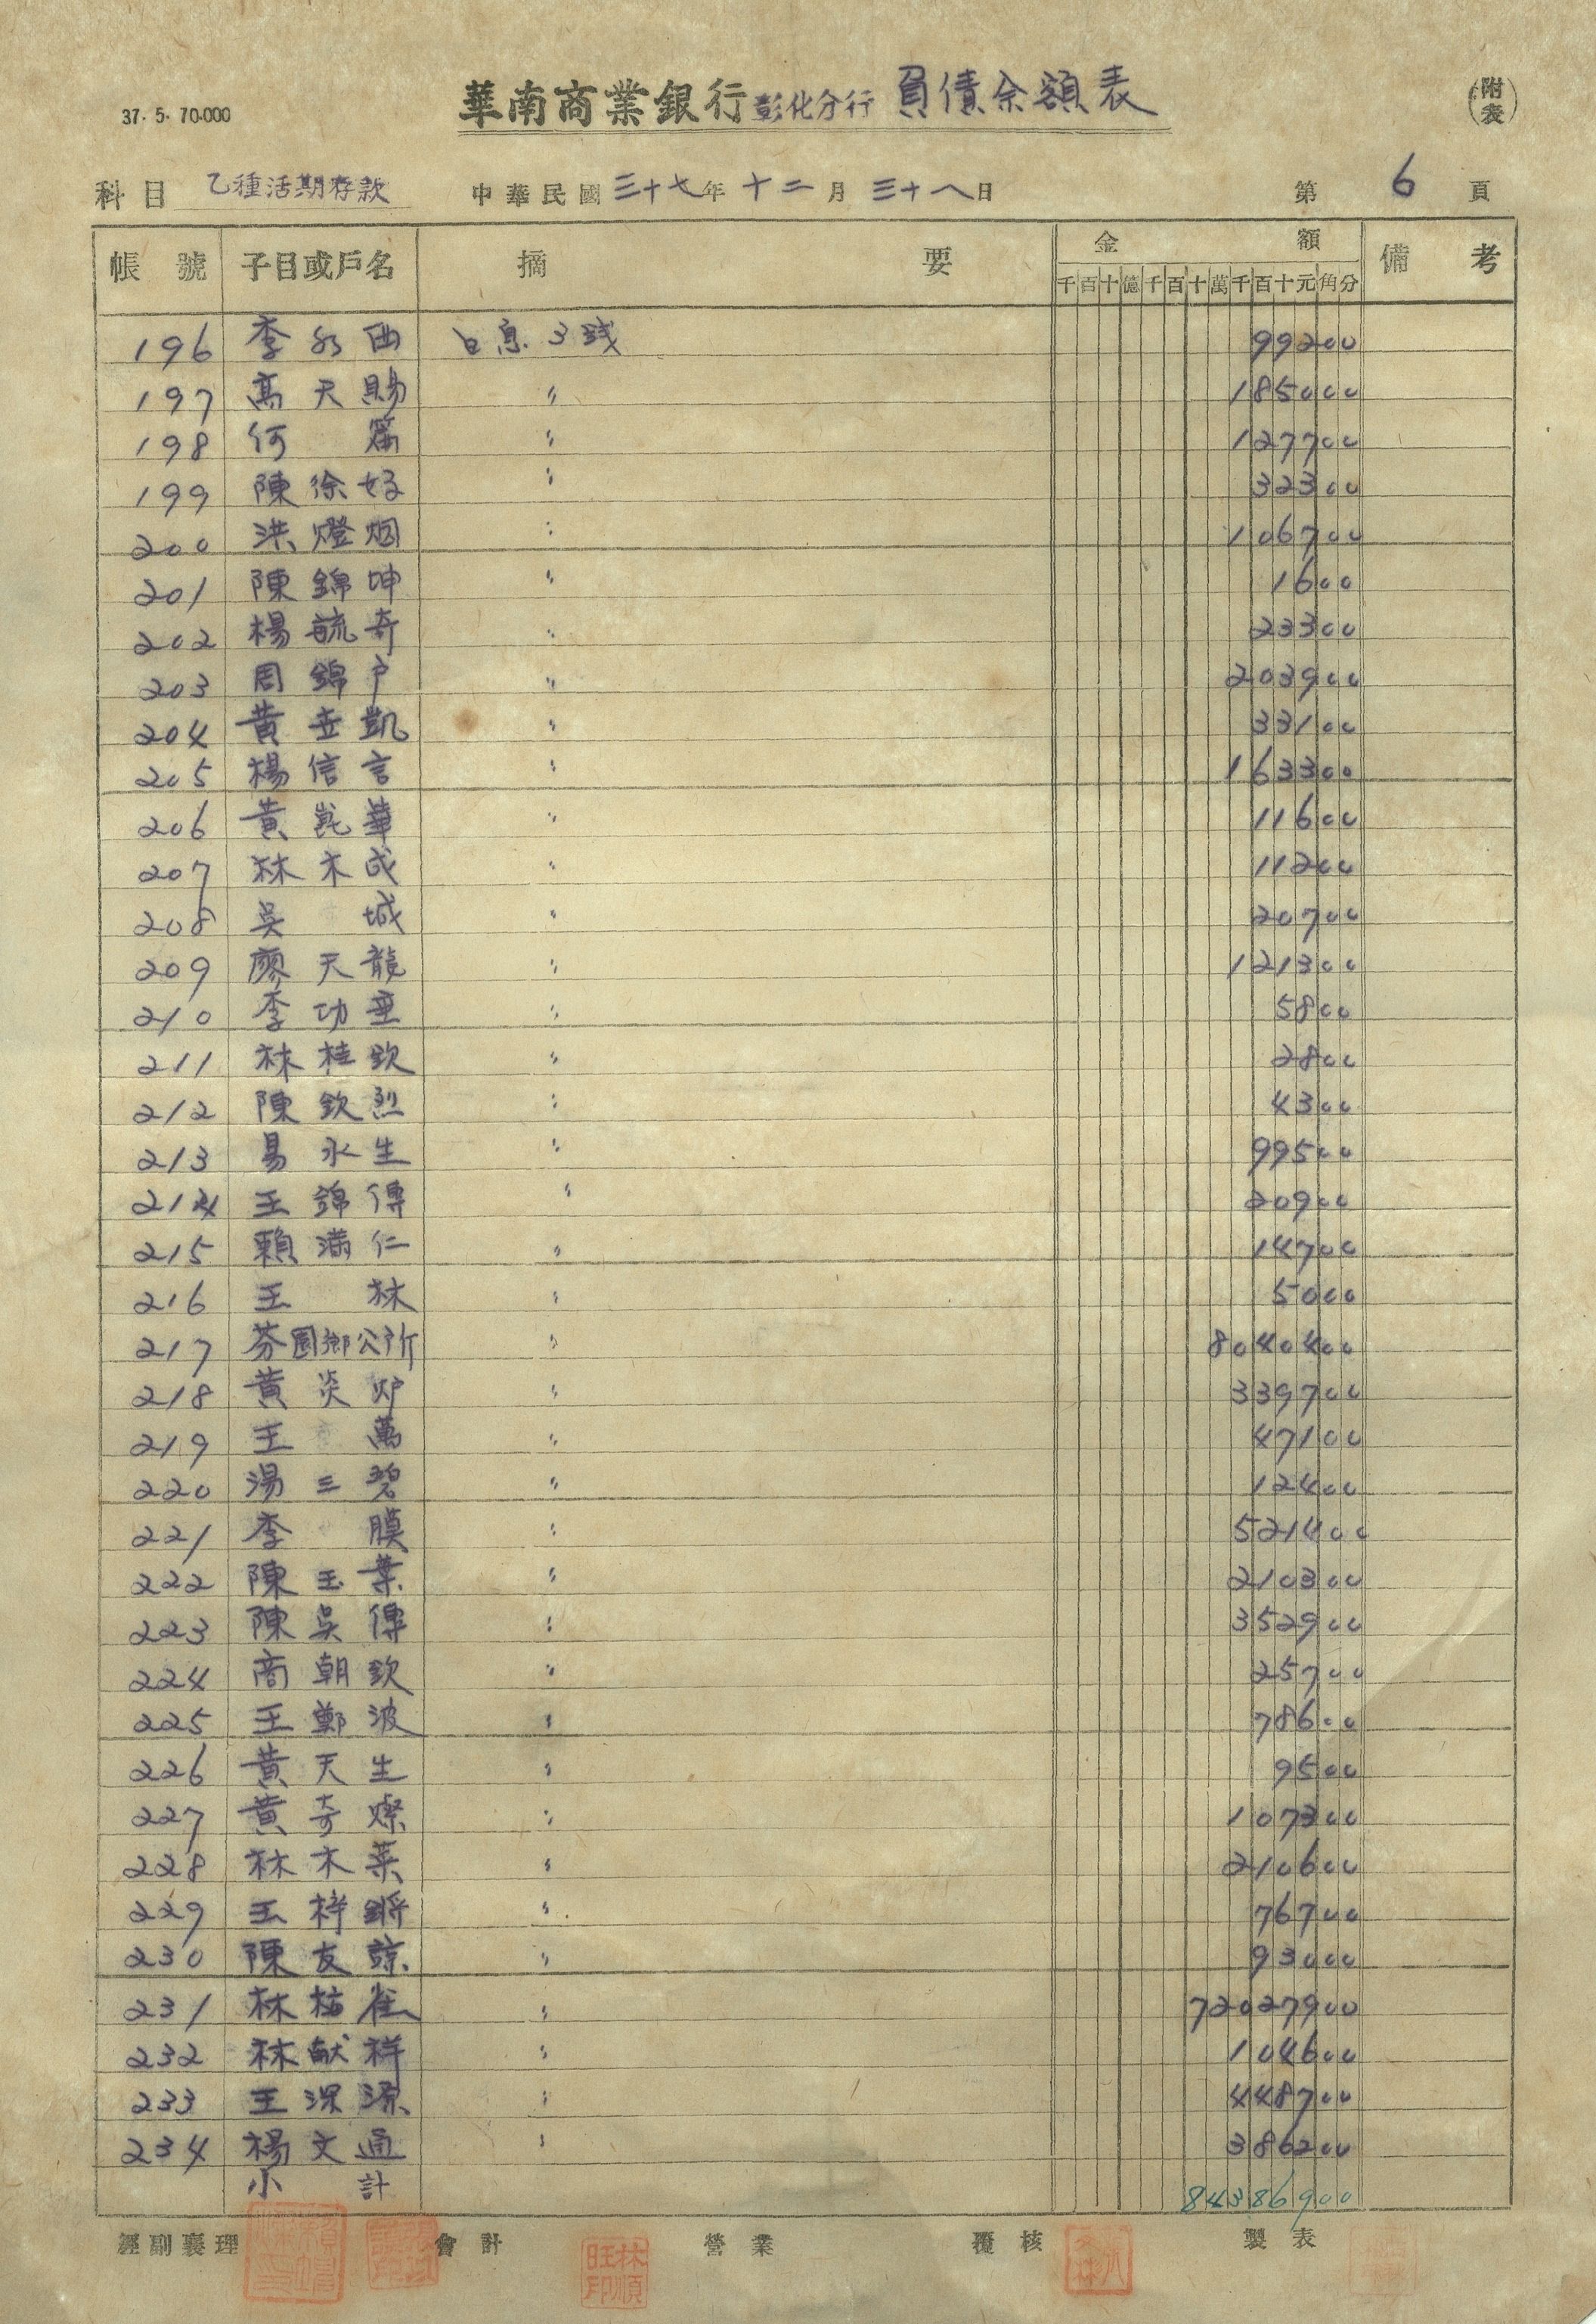 37. 5. 70.000
華南商業銀行彰化分行 負債余額表
(附表)
科目 乙種活期存款 中華民國三十七年十二月三十八日 第 6 頁
帳號 子目或戶名 摘要 金額 備考
千百十億千百十萬千百十元角分
196 李 西 日息3錢 99200
197 高天賜 〃 185000
198 何 〃 127700
199 陳徐好 〃 32300
200 洪燈烟 〃 106700
201 陳錦坤 〃 1600
202 楊毓奇 〃 23300
203 周錦戶 〃 203900
204 黃世凱 〃 33100
205 楊信言 〃 163300
206 黃崑華 〃 11600
207 林木成 〃 11200
208 吳城 〃 20700
209 廖天龍 〃 121300
210 李功垂 〃 5800
211 林桂欽 〃 2800
212 陳欽烈 〃 4300
213 易永生 〃 99500
214 王錦傳 〃 20900
215 賴滿仁 〃 14700
216 王林 〃 5000
217 芬園鄉公所 〃 8040400
218 黃炎炉 〃 339700
219 王萬 〃 47100
220 湯三碧 〃 12400
221 李膜 〃 521400
222 陳玉葉 〃 210300
223 陳吳傳 〃 352900
224 商朝欽 〃 25700
225 王鄭波 〃 78600
226 黃天生 〃 9500
227 黃奇燦 〃 107300
228 林木菜 〃 210600
229 王梓鏘 〃 76700
230 陳友諒 〃 93000
231 林枯雀 〃 72027900
232 林献祥 〃 104600
233 王深源 〃 448700
234 楊文通 〃 386200
小計 84386900
經副襄理 會計 營業 覆核 製表
林順旺印